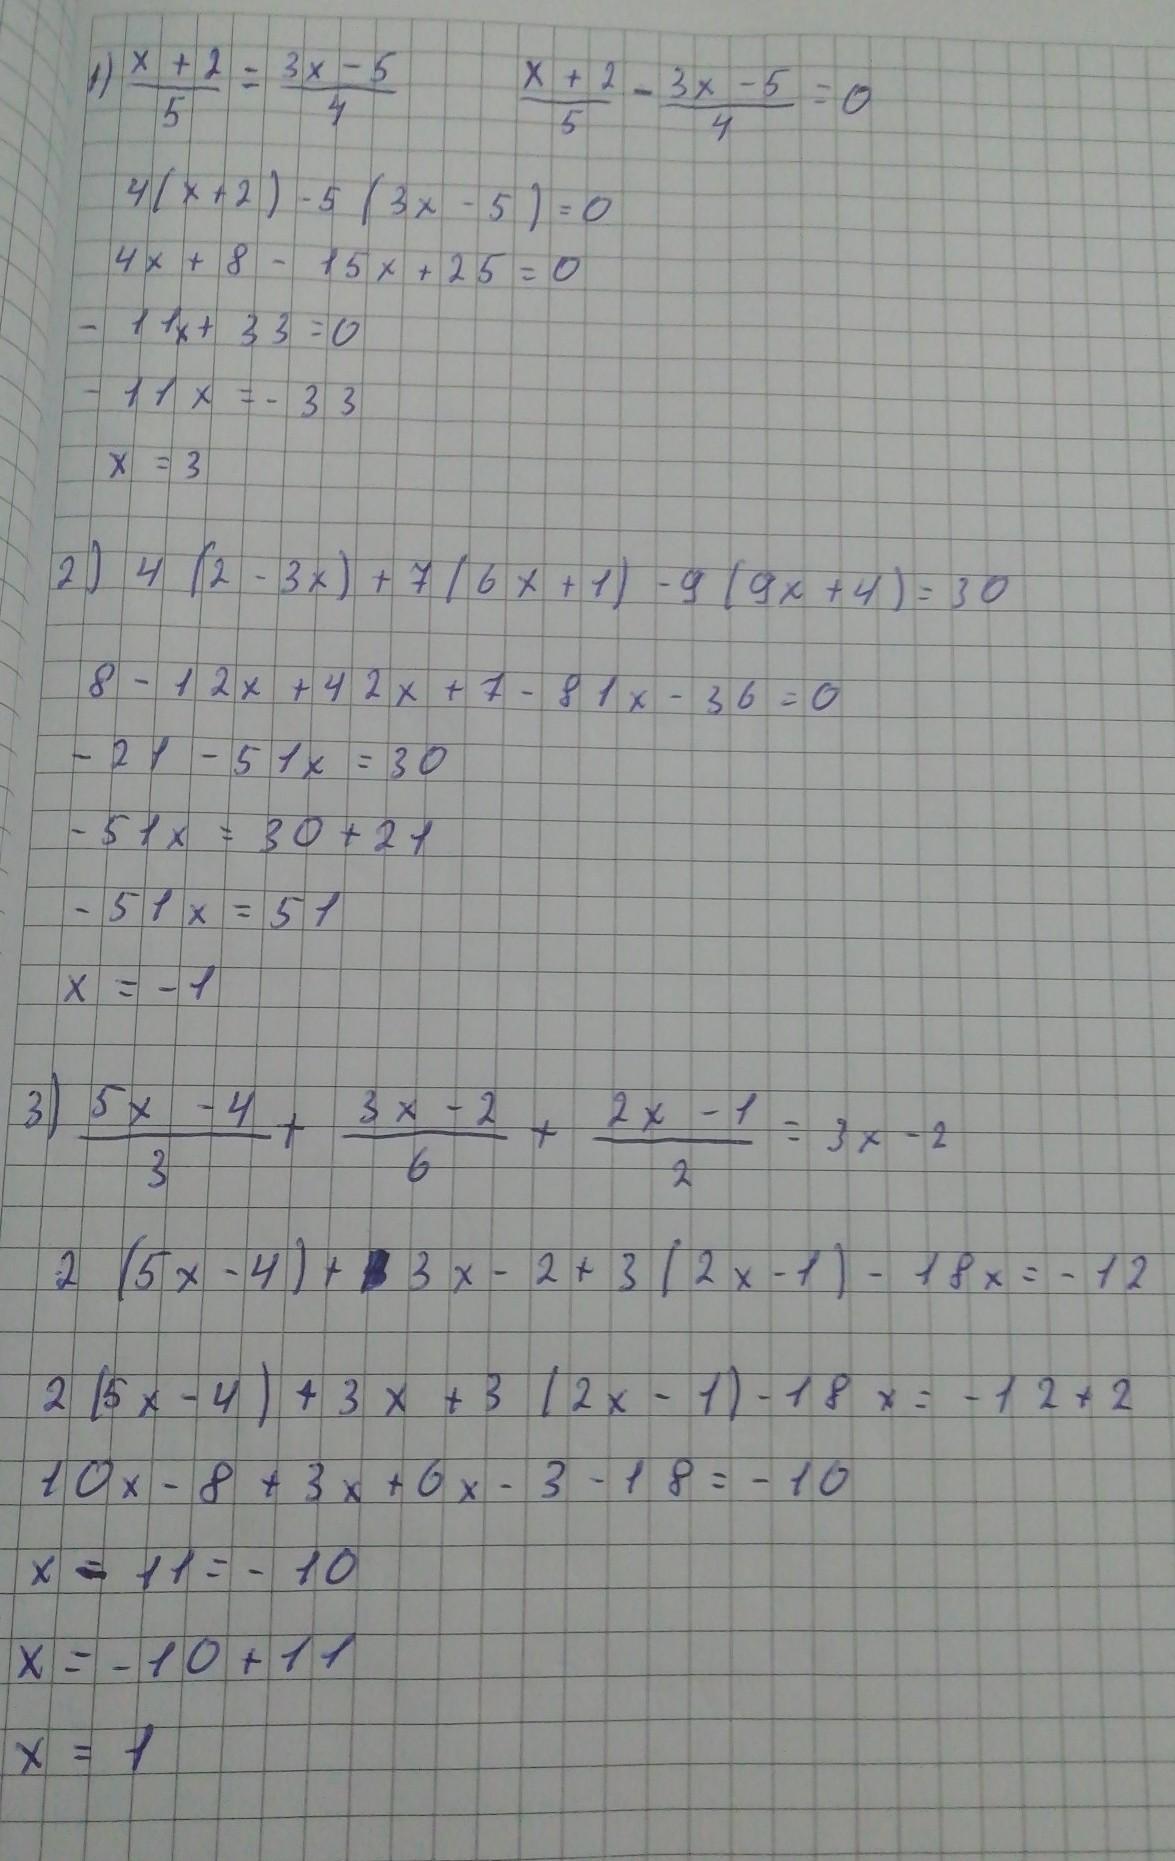 1) (x + 2)/5 = (3x - 5)/4    (x + 2)/5 - (3x - 5)/4 = 0
4(x+2) - 5(3x - 5) = 0
4x + 8 - 15x + 25 = 0
- 11x + 33 = 0
- 11x = - 33
x = 3
2) 4 (2 - 3x) + 7(6x + 1) - 9(9x + 4) = 30
8 - 12x + 42x + 7 - 81x - 36 = 0
- 21 - 51x = 30
- 51x = 30 + 21
- 51x = 51
x = - 1
3) (5x - 4)/3 + (3x - 2)/6 + (2x - 1)/2 = 3x - 2
2 (5x - 4) + 3x - 2 + 3(2x - 1) - 18x = - 12
2(5x - 4) + 3x + 3(2x - 1) - 18x = - 12 + 2
10x - 8 + 3x + 6x - 3 - 18 = - 10
x - 11 = - 10
x = - 10 + 11
x = 1